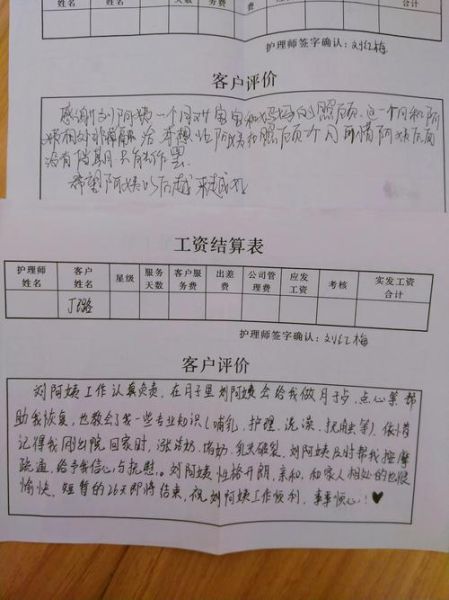 姓名 姓名 天数 务费 费 理费 工资 合计
护理师签字确认：刘红梅
客户评价
感谢刘阿姨一个月对宝宝和妈妈的照顾，这一个月和阿
姨相处非常融洽 本想让阿姨在照顾个月 可惜阿姨后面
没有档期只能作罢
希望阿姨以后越来越好
工资结算表
护理师姓名 客户姓名 星级 服务天数 客户服务费 出差费 公司管理费 应发工资 考核 实发工资合计
丁璐
护理师签字确认：刘红梅
客户评价
刘阿姨工作认真负责，在月子里刘阿姨会给我做月子餐，点心等帮
助我恢复，也教会了我一些专业知识（哺乳、护理、洗澡、抚触等）。依惜
记得我刚出院回家时，涨奶、堵奶、乳头破裂，刘阿姨及时帮我按摩
疏通，给予我信心与抚慰。刘阿姨性格开朗，亲和，和家人相处的也很
愉快，短暂的26天即将结束，祝刘阿姨工作顺利，事事顺心！♥